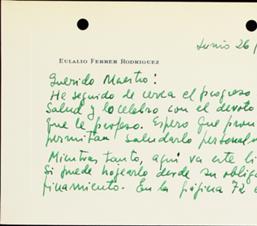 Junio 26/
EULALIO FERRER RODRIGUEZ
Querido Maestro:
He seguido de cerca el progreso
salud y lo celebro con el devoto
que le profeso. Espero que pron
permitan saludarlo personalm
Mientras tanto, aquí va este li
Si puede hojearlo desde su obliga
finamiento. En la página 72 e